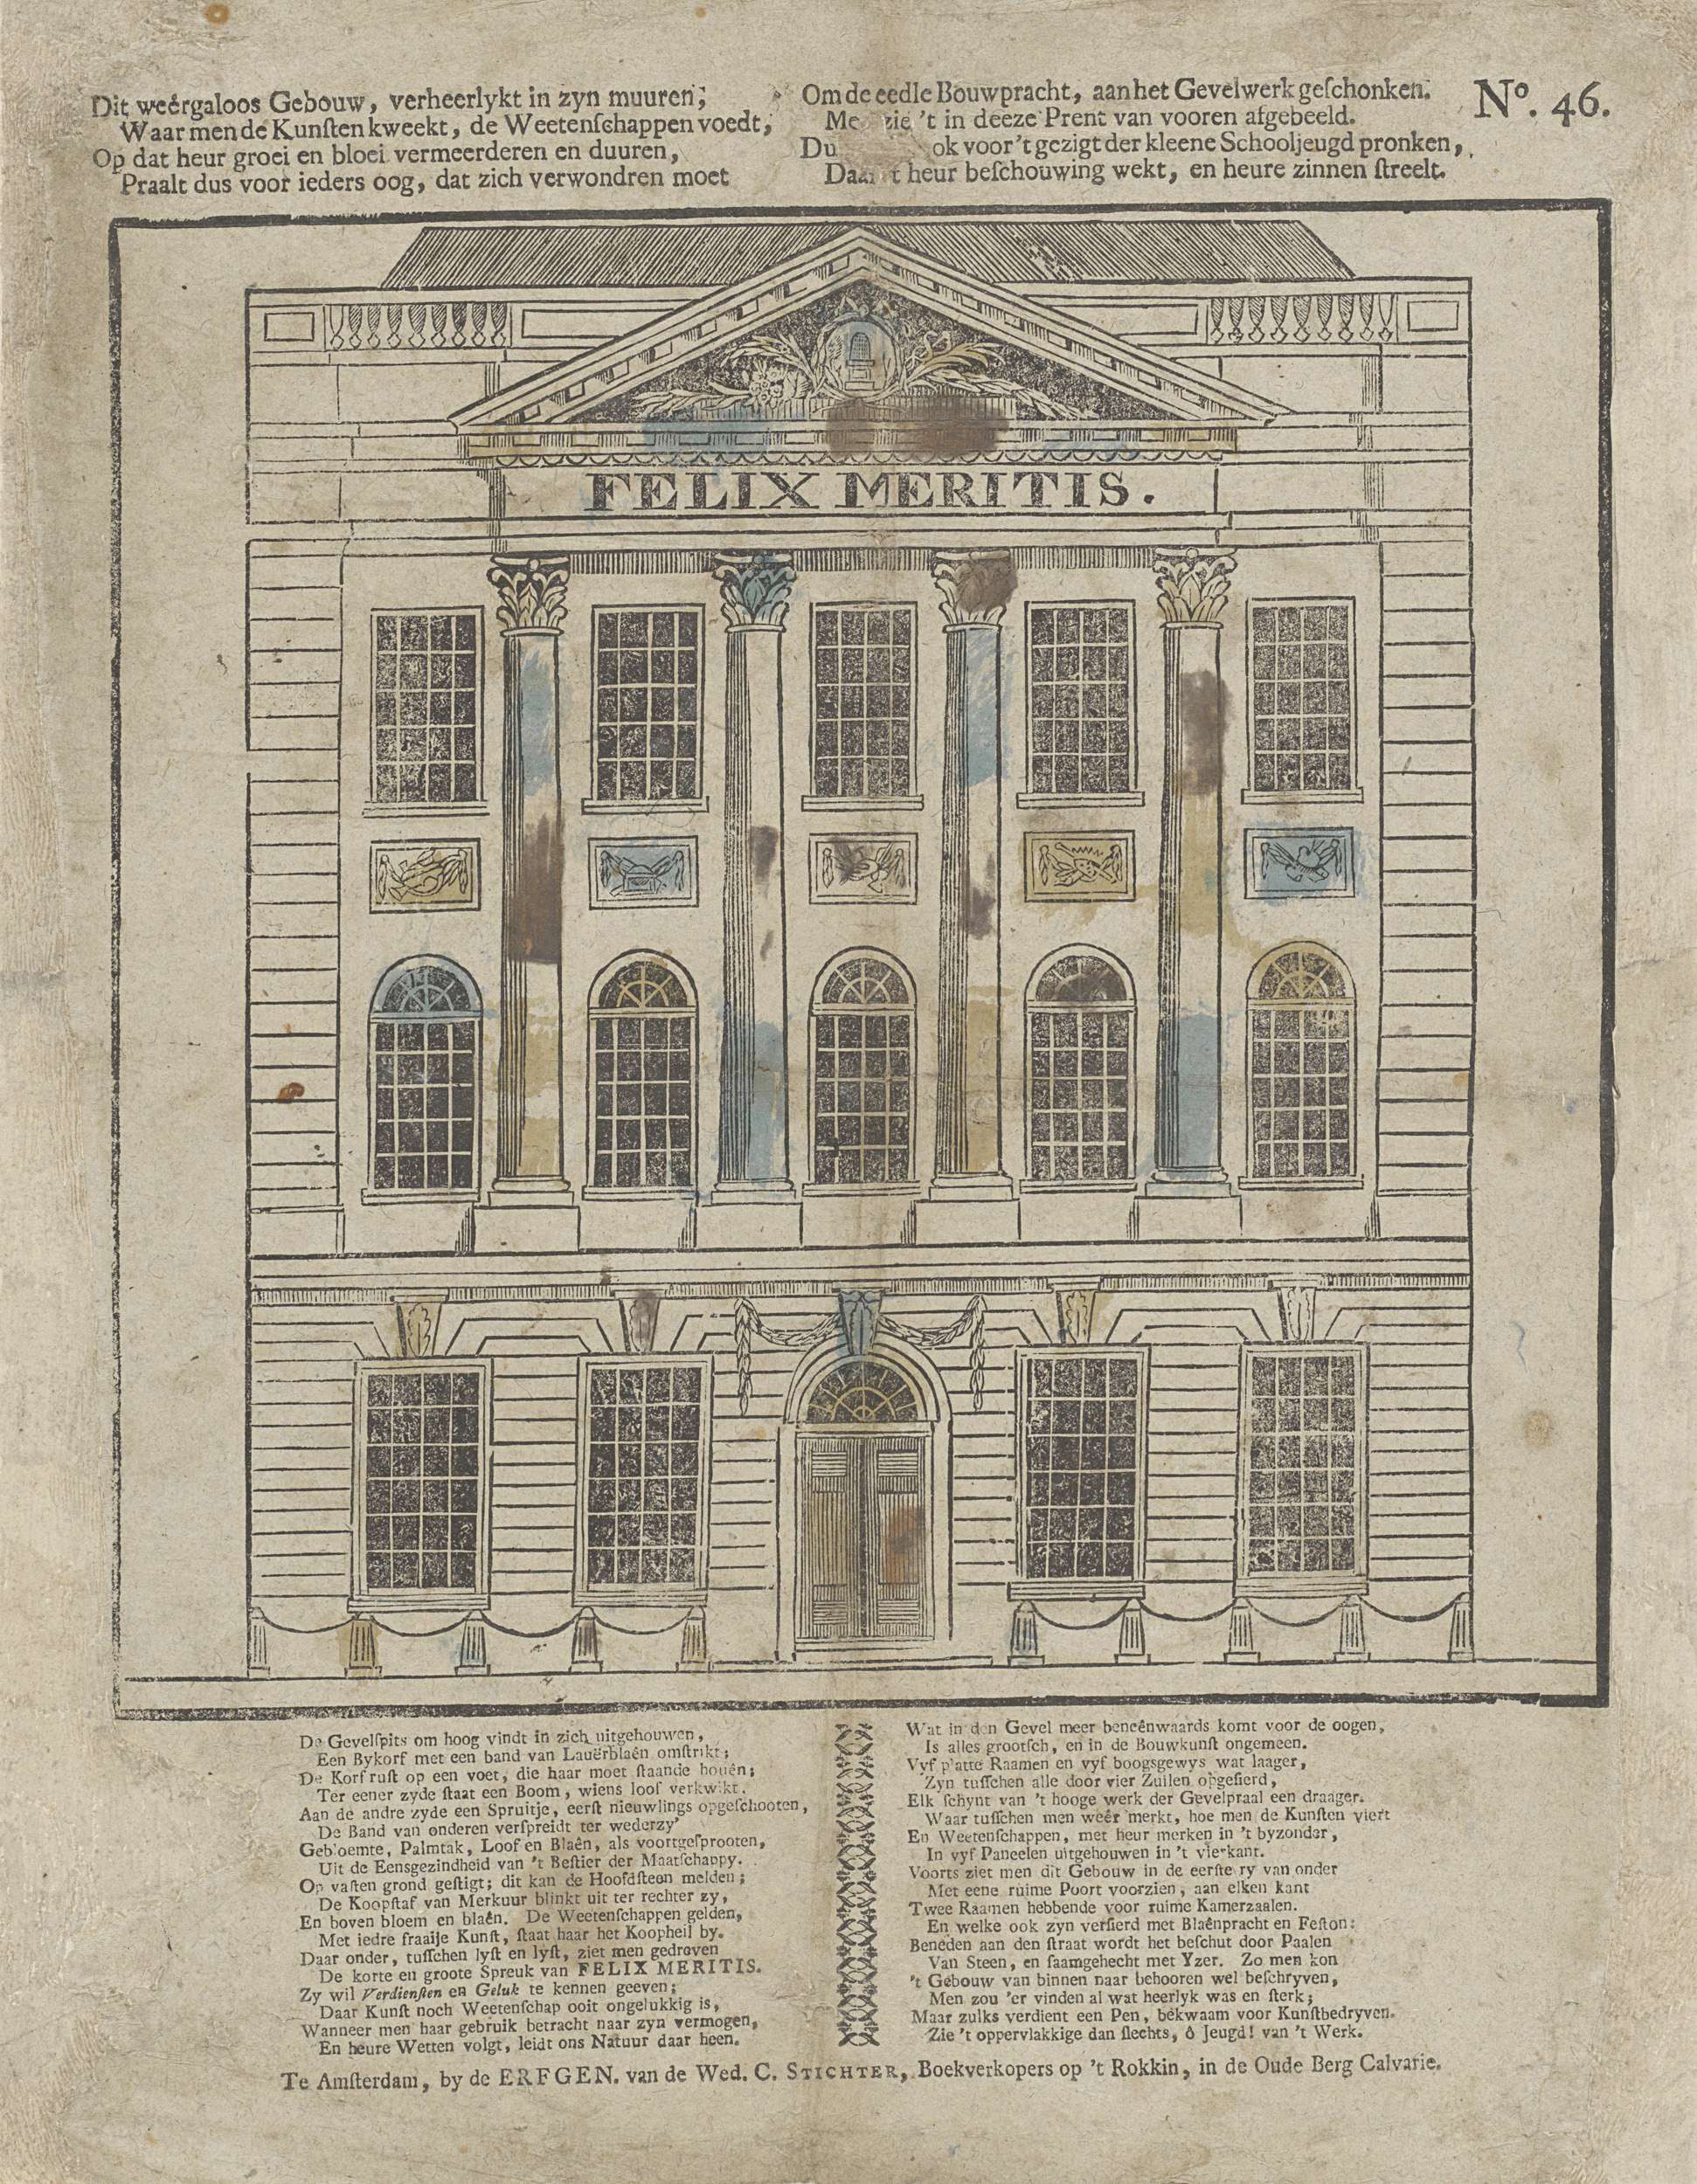 Dit weêrgaloos Gebouw, verheerlykt in zyn muuren;
Waar men de Kunſten kweekt, de Weetenſchappen voedt,
Op dat heur groei en bloei vermeerderen en duuren,
Praalt dus voor ieders oog, dat zich verwondren moet
Om de eedle Bouwpracht, aan het Gevelwerk geſchonken.
zie 't in deeze Prent van vooren afgebeeld.
voor 't gezigt der kleene Schooljeugd pronken,
heur beſchouwing wekt, en heure zinnen ſtreelt.
No. 46.
FELIX MERITIS.
De Gevelſpits om hoog vindt in zich uitgehouwen,
Een Bykorf met een band van Lauërblaên omſtrikt;
De Korf ruſt op een voet, die haar moet ſtaande houên;
Ter eener zyde ſtaat een Boom, wiens loof verkwikt.
Aan de andre zyde een Spruitje, eerſt nieuwlings opgeſchooten,
De Band van onderen verſpreidt ter wederzy'
Gebloemte, Palmtak, Loof en Blaên, als voortgeſprooten,
Uit de Eensgezindheid van 't Beſtier der Maatſchappy.
Op vaſten grond geſtigt; dit kan de Hoofdſteen melden;
De Koopſtaf van Merkuur blinkt uit ter rechter zy,
En boven bloem en blaên. De Weetenſchappen gelden,
Met iedre fraaije Kunſt, ſtaat haar het Koopheil by.
Daar onder, tuſſchen lyſt en lyſt, ziet men gedreven
De korte en groote Spreuk van FELIX MERITIS.
Zy wil Verdienſten en Geluk te kennen geeven;
Daar Kunſt noch Weetenſchap ooit ongelukkig is,
Wanneer men haar gebruik betracht naar zyn vermogen,
En heure Wetten volgt, leidt ons Natuur daar heen.
Wat in den Gevel meer beneênwaards komt voor de oogen,
Is alles grootſch, en in de Bouwkunſt ongemeen.
Vyf platte Raamen en vyf boogsgewys wat laager,
Zyn tuſſchen alle door vier Zuilen opgeſierd,
Elk ſchynt van 't hooge werk der Gevelpraal een draager.
Waar tuſſchen men weêr merkt, hoe men de Kunſten viert
En Weetenſchappen, met heur merken in 't byzonder,
In vyf Paneelen uitgehouwen in 't vierkant.
Voorts ziet men dit Gebouw in de eerſte ry van onder
Met eene ruime Poort voorzien, aan elken kant
Twee Raamen hebbende voor ruime Kamerzaalen.
En welke ook zyn verſierd met Blaênpracht en Feſton:
Beneden aan den ſtraat wordt het beſchut door Paalen
Van Steen, en ſaamgehecht met Yzer. Zo men kon
't Gebouw van binnen naar behooren wel beſchryven,
Men zou 'er vinden al wat heerlyk was en ſterk;
Maar zulks verdient een Pen, bekwaam voor Kunſtbedryven.
Zie 't oppervlakkige dan ſlechts, ô Jeugd! van 't Werk.
Te Amſterdam, by de ERFGEN. van de Wed. C. STICHTER, Boekverkopers op 't Rokkin, in de Oude Berg Calvarie.